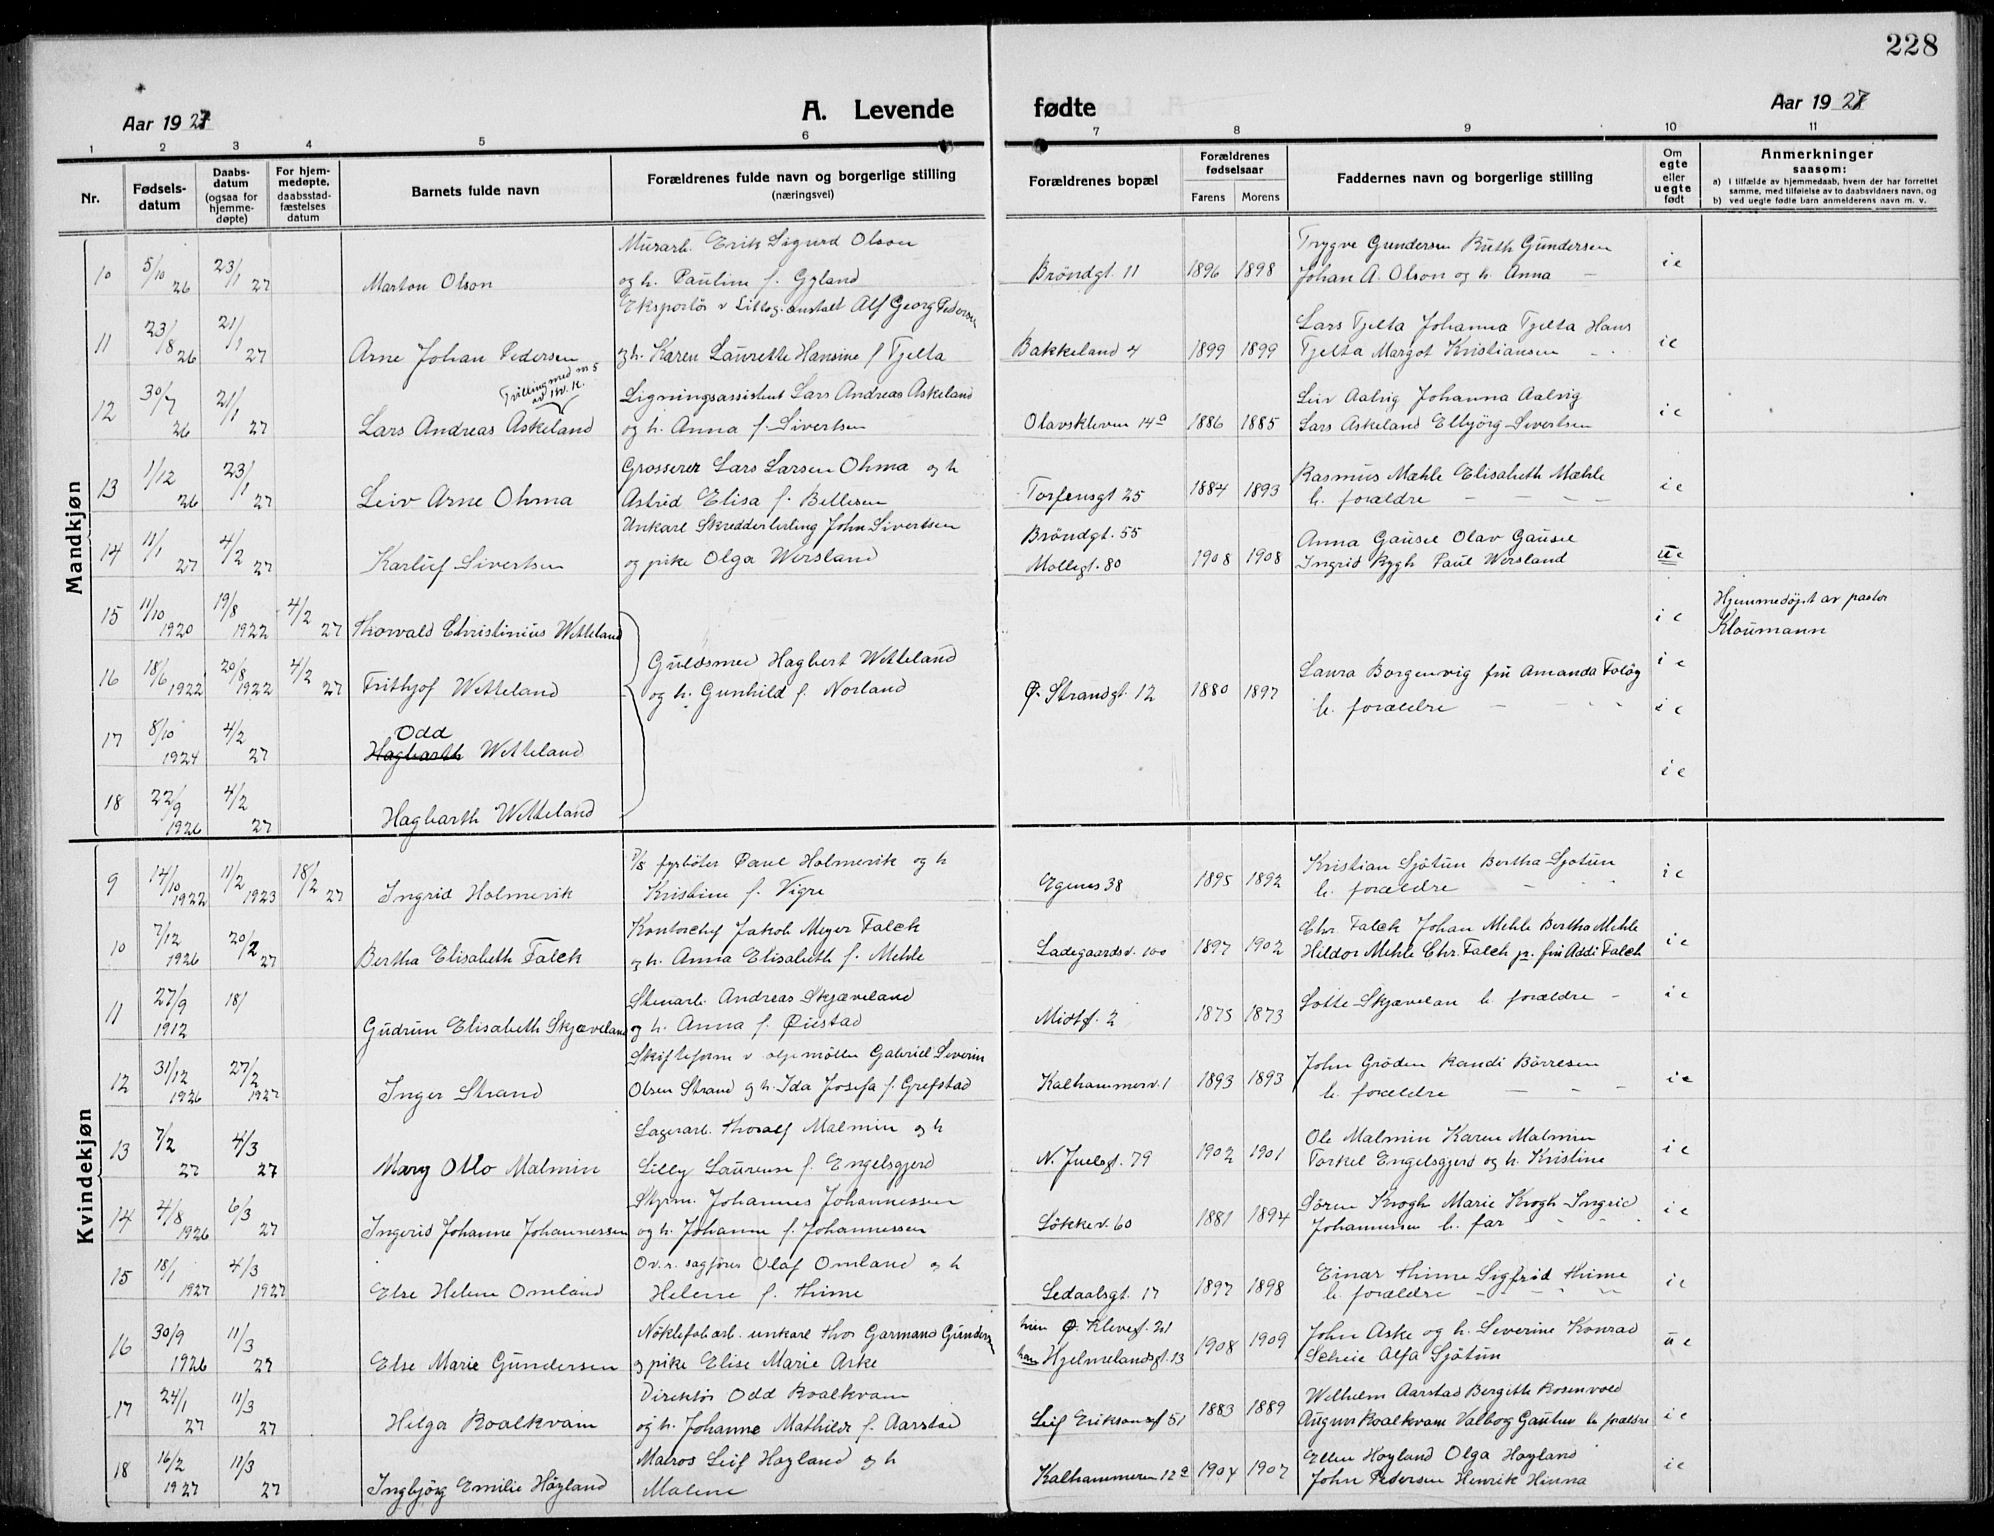 228
Aar 1927
A. Levende fødte
Aar 1927
1 2 3 4 5 6 7 8 9 10 11
Nr.
Fødsels-
datum
Daabs-
datum
(ogsaa for
hjemme-
døpte)
For hjem-
medøpte,
daabsstad-
fæstelses
datum
Barnets fulde navn
Forældrenes fulde navn og borgerlige stilling
(næringsvei)
Forældrenes bopæl
Forældrenes
fødselsaar
Farens Morens
Faddernes navn og borgerlige stilling
Om
egte
eller
uegte
født
Anmerkninger
saasom:
a) I tilfælde av hjemmedaab, hvem der har forrettet
samme, med tilføielse av to daabsvidners navn, og
b) ved uegte fødte barn anmelderens navn m. v.
Mandkjøn
10 5/10 26 23/1 27 Marton Olson
Murarb. Erik Sigurd Olson
og h. Pauline f. Gyland
Bröndgt. 11 1896 1898
Trygve Gundersen Ruth Gundersen
Johan A. Olson og h. Anna –
i e
11 23/8 26 21/1 27 Arne Johan Pedersen
Eksportör v Littog. anstalt Alf Georg Pedersen
og h. Karen Laurette Hansine f Tjelta
Bakkeland 4 1899 1899
Lars Tjelta Johanna Tjelta Hans
Tjelta Margot Kristiansen
i e
12 30/7 26 21/1 27
Trilling med nr 5
av Kv. K.
Lars Andreas Askeland
Ligningsassistent Lars Andreas Askeland
og h. Anna f. Sivertsen
Olavskleven 14a 1886 1885
Leiv Aalvig Johanna Aalvig
Lars Askeland Elbjörg Sivertsen
i e
13 1/12 26 23/1 27 Leiv Arne Ohma
Grosserer Lars Larsen Ohma og h
Astrid Elisa f. Bellesen
Torfensgt 25 1884 1893
Rasmus Mæhle Elisabeth Mæhle
b. forældre – – –
i e
14 11/1 27 4/2 27 Karluf Sivertsen
Unkarl Skredderlerling John Sivertsen
og pike Olga Wersland
Bröndgt. 55
Mollegt. 80 1908 1908
Anna Gausel Olav Gausel
Ingrid Rygh Paul Wersland
u e
15 11/10 1920 19/8 1922 4/2 27 Thorvald Christinius Wetteland
i e
Hjemmedöpt av pastor
Kloumann
16 18/6 1922 20/8 1922 4/2 27 Frithjof Wetteland
Guldsmed Hagbert Wetteland
og h. Gunhild f. Norland
Ø. Strandgt. 12 1880 1897
Laura Borgenvig frn Amanda Foløg
b. forældre – – –
i e
i e
17 8/10 1924 4/2 27 Odd
Hagbarth Wetteland
i e
18 22/9 1926 4/2 27 Hagbarth Wetteland
Kvindekjøn
9 14/10 1922 11/2 1923 18/2 27 Ingrid Holmevik
D/S fyrböter Paul Holmevik og h
Kristine f. Vigre
Egenes 38 1895 1892
Kristian Sjötun Bertha Sjotun
b. forældre
i e
10 7/12 1926 20/2 27 Bertha Elisabeth Falck
Kontorchef Jakob Meyer Falck
og h. Anna Elisabeth f. Mehle
Ladegaardsv. 100 1897 1902
Chr. Falck Johan Mehle Bertha Mehle
Hildor Mehle Chr. Falck jr. frn Addi Falch
i e
11 27/9 1912 18/1 Gudrun Elisabeth Skjæveland
Stenarb. Andreas Skjæveland
og h. Anna f. Øiestad
Midtf. 2 1875 1873
Lotte Skjævelan b. forældre –
i e
12 31/12 1926 27/2 1927 Inger Strand
Skifteform v oljemöllen Gabriel Severin
Olsen Strand og h. Ida Josefa f. Grefstad
Kalhammerv. 1 1893 1893
John Gröden Randi Börresen
b. forældre – –
i e
13 7/2 27 4/3 27 Mary Otto Malmin
Lagerarb. Thoralf Malmin og h
Lilly Laurense f. Engelsgjerd
N. Juelsgt. 79 1902 1901
Ole Malmin Karen Malmin
Torkel Engelsgjerd og h. Kristine
i e
14 4/8 1926 6/3 27 Ingerid Johanne Johannessen
Styrm. Johannes Johannessen
og h. Johanne f. Johannessen
Løkkev. 60 1881 1894
Sören Krogh Marie Krogh Ingrid
Johannesen b. far
i e
15 18/1 1927 4/3 1927 Else Helene Omland
O.v.r. sagförer Olaf Omland og h
Helene f. Thime
Ledaalsgt. 17 1897 1898
Einar Thime Sigfrid Thime
b. forældre
i e
16 30/9 1926 11/3 27 Else Marie Gundersen
Nöklefabarb. unkarl Thor Garmand Gundersen
og pike Elise Marie Aske
hun Ø. Klevegt. 21
han Hjelmelandsgt. 13 1908 1909
John Aske og h. Severine Konrad
Scheie Alfa Sjötun
u e
17 24/1 27 11/3 27 Helga Roalkvam
Direktör Odd Roalkvam
og h. Johanne Mathilde f. Aarstad
Leif Eriksonsgt 51 1883 1889
Wilhelm Aarstad Bergitte Rosenvold
August Roalkvam Valborg Gautun b. forældre
i e
18 16/2 1927 11/3 27 Ingbjörg Emilie Höyland
Matros Leif Hoyland og h
Malene
Kalhammeren 12a 1904 1907
Ellen Hoyland Olga Hoyland
John Pedersen Henrik Hinna
i e